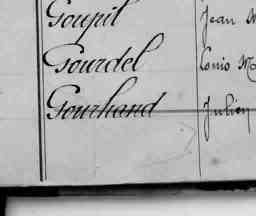 Goupil Jean M
Gourdel Louis M
Gourhand Julien